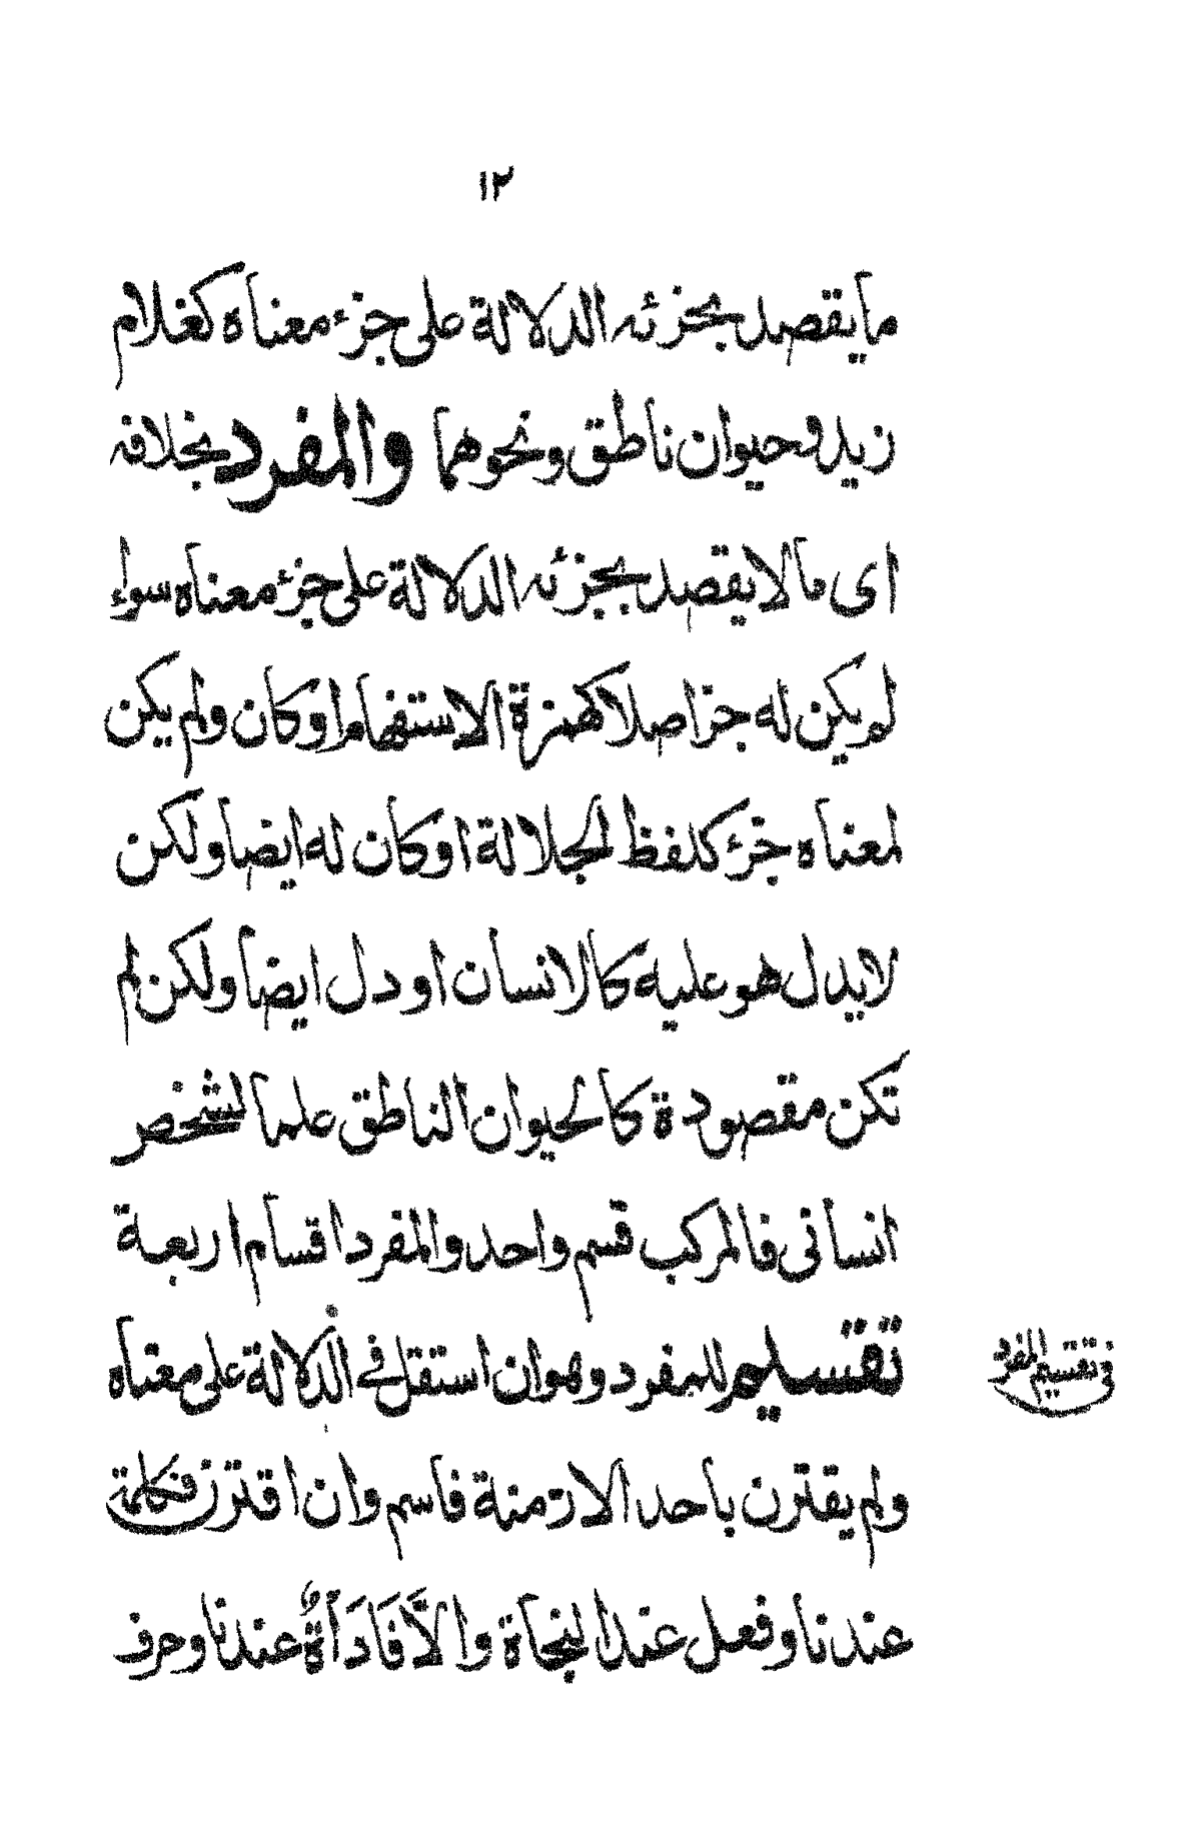 ١٢
ما يقصد بجزئه الدلالة على جزء معناه كغلام
زيد وحيوان ناطق ونحوهما والمفرد بخلافه
اى ما لا يقصد بجزئه الدلالة على جزء معناه سواء
لم يكن له جزا صلا كهمزة الاستفهام او كان ولم يكن
لمعناه جزء كلفظ الجلالة او كان له ايضا ولكن
لا يدل هو عليه كالانسان او دل ايضا ولكن لم
تكن مقصودة كالحيوان الناطق علما لشخص
انسانى فالمركب قسم واحد والمفرد اقسام اربعة
تقسيم للمفرد وهو ان استقل فى الدلالة على معناه
فى تقسيم المفرد
ولم يقترن باحد الازمنة فاسم وان اقترن فكلمة
عندنا وفعل عند النحاة والَّا فَاَدَاَةٌ عندنا وحرف